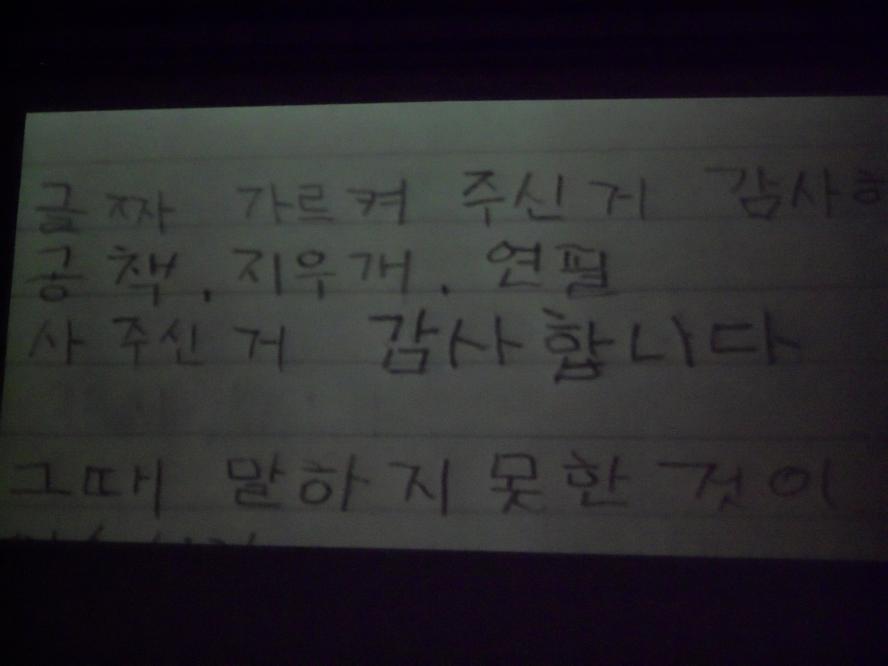 글짜 가르켜 주신거 감사하
공책, 지우개, 연필
사 주신 거 감사합니다
그때 말하지 못한 것이